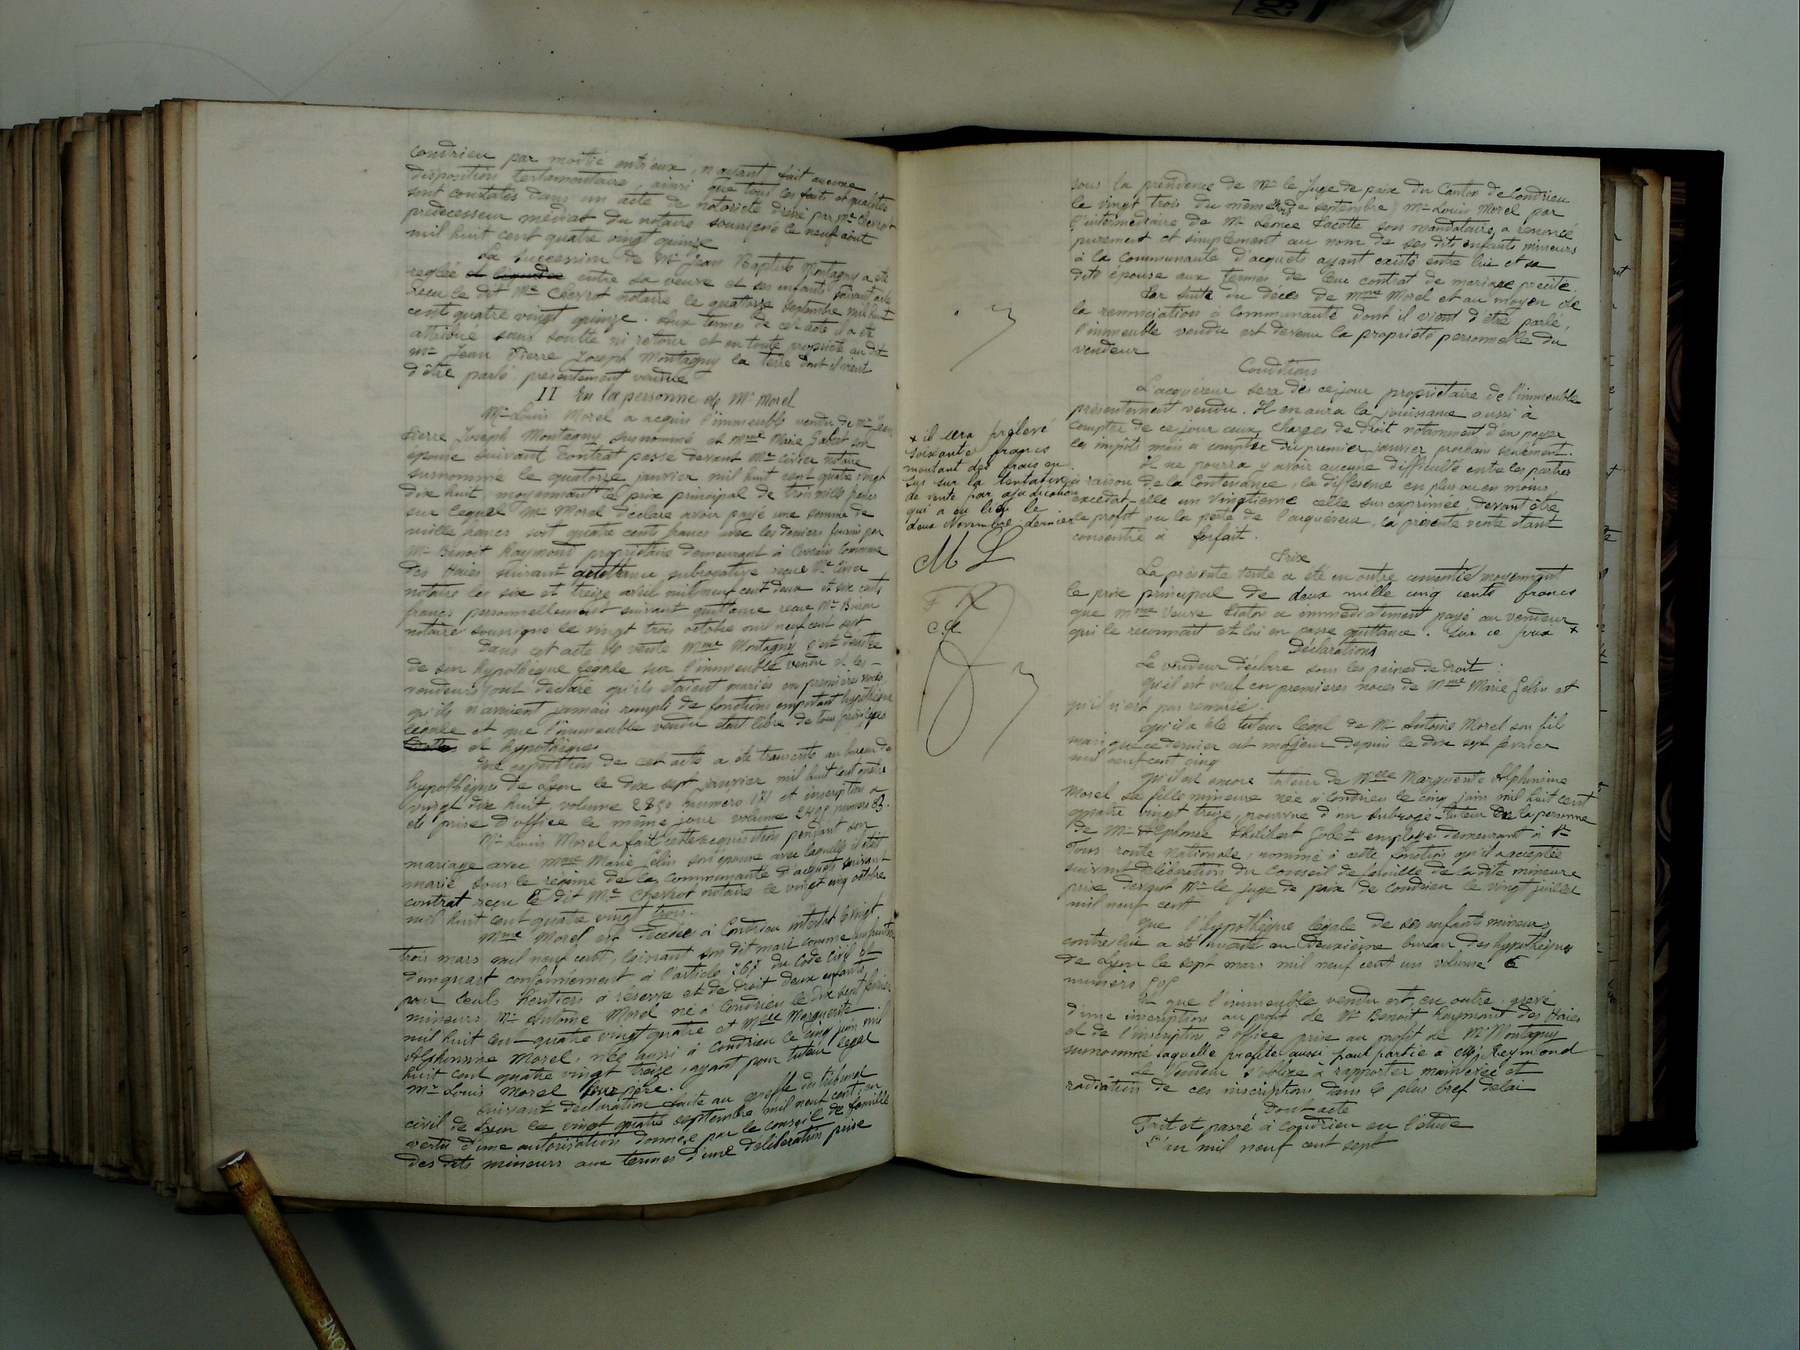 Condrieu par moitié entr'eux, n'ayant fait aucune
disposition testamentaire, ainsi que tous les faits et qualités
sont constatés dans un acte de notoriété dressé par Me Chevrot
prédecesseur médiat du notaire soussigné le neuf août
mil huit cent quatre vingt quinze
La succession de Mr Jean Baptiste Montagny a été
reglée et liquidée entre sa veuve et ses enfants suivant acte
reçu le dit Me Chevrot notaire le quatorze septembre mil huit
cent quatre vingt quinze. Aux termes de cet acte il a été
attribué sans soulte ni retour et en toute propriété au dit
Mr Jean Pierre Joseph Montagny la terre dont il vient
d'être parlé présentement vendue
II En la personne de Mr Morel
Mr Louis Morel a acquis l'immeuble vendu de Mr Jean
Pierre Joseph Montagny surnommé et Mme Marie Gabert son
épouse suivant contrat passé devant Me notaire
surnommé le quatorze janvier mil huit cent quatre vingt
dix huit, moyennant le prix principal de trois mille francs
sur lequel Mr Morel déclare avoir payé une somme de
mille francs soit quatre cents francs avec les deniers fournis par
Mr Benoit Raymond propriétaire demeurant à commune
des Haies suivant quittance subrogative reçue Me
notaire les six et treize avril mil neuf cent deux et six cents
francs personnellement suivant quittance reçue Me
notaire soussigné le vingt trois octobre mil neuf cent sept
Dans cet acte de vente Mme Montagny s'est désistée
de son hypothèque légale sur l'immeuble vendu et les
vendeurs ont déclaré qu'ils étaient mariés en premières noces
qu'ils n'avaient jamais rempli de fonctions emportant hypothèque
légale et que l'immeuble vendu était libre de tous privilèges
et hypothèques
Une expédition de cet acte a été transcrite au bureau des
hypothèques de Lyon le dix sept janvier mil huit cent quatre
vingt dix huit, volume 2850 numéro 171 et inscription a
été prise d'office le même jour volume 2490 numéro 83.
Mr Louis Morel a fait cette acquisition pendant son
mariage avec Mme Marie Gelin son épouse avec laquelle il était
marié sous le régime de la communauté d'acquêts suivant
contrat reçu le dit Me Chevrot notaire le vingt cinq octobre
mil huit cent quatre vingt trois.
Mme Morel est décédée à Condrieu le vingt
trois mars mil neuf cent, laissant son dit mari comme usufruitier
d'un quart conformément à l'article 767 du Code Civil et
pour seuls héritiers à réserve et de droit deux enfants
mineurs, Mr Antoine Morel né à Condrieu le dix sept février
mil huit cent quatre vingt quatre et Melle Marguerite
Alphonsine Morel, née aussi à Condrieu le cinq juin mil
huit cent quatre vingt treize, ayant pour tuteur légal
Mr Louis Morel leur père.
Suivant déclaration faite au greffe du tribunal
civil de Lyon le vingt quatre septembre mil neuf cent, en
vertu d'une autorisation donnée par le conseil de famille
des dits mineurs aux termes d'une délibération prise
sous la présidence de Mr le Juge de paix du Canton de Condrieu
le vingt trois du même mois de septembre, Mr Louis Morel par
l'intermédiaire de Me Lacotte son mandataire, a renoncé
purement et simplement au nom de ses dits enfants mineurs
à la communauté d'acquêts ayant existé entre lui et sa
dite épouse aux termes de leur contrat de mariage précité.
Par suite du décès de Mme Morel et au moyen de
la renonciation à communauté dont il vient d'être parlé,
l'immeuble vendu est devenu la propriété personnelle du
vendeur
Conditions
L'acquéreur sera dès ce jour propriétaire de l'immeuble
présentement vendu. Il en aura la jouissance aussi à
compter de ce jour ceux charges de droit notamment d'en payer
les impôts mais à compter du premier janvier prochain seulement.
Il ne pourra y avoir aucune difficulté entre les parties
à raison de la contenance, la différence en plus ou en moins,
excédat-elle un vingtième celle sus exprimée, devant être
le profit ou la perte de l'acquéreur, la présente vente étant
consentie à forfait.
Prix
La présente vente a été en outre consentie moyennant
le prix principal de deux mille cinq cents francs
que Mme Veuve a immédiatement payé au vendeur
qui le reconnait et lui en passe quittance. Sur ce prix x
x il sera prélevé
soixante francs
montant des frais en
sus sur la tentative
de vente par adjudication
qui a eu lieu le
deux Novembre dernier
M L
Déclarations
Le vendeur déclare sous les peines de droit :
Qu'il est veuf en premières noces de Mme Marie Gelin et
qu'il n'est pas remarié.
Qu'il a été tuteur légal de Mr Antoine Morel son fils
mais que ce dernier est majeur depuis le dix sept février
mil neuf cent cinq
Qu'il est encore tuteur de Melle Marguerite Alphonsine
Morel sa fille mineure née à Condrieu le cinq juin mil huit cent
quatre vingt treize, pourvue d'un subrogé-tuteur en la personne
de Mr Alphonse Philibert Godet employé demeurant à St
Fons route Nationale, nommé à cette fonction qu'il a acceptée
suivant délibération du Conseil de famille de la dite mineure
prise devant Mr le juge de paix de Condrieu le vingt juillet
mil neuf cent
Que l'hypothèque légale de ses enfants mineurs
contre lui a été inscrite au deuxième bureau des hypothèques
de Lyon le sept mars mil neuf cent un volume 6
numéro 505
Et que l'immeuble vendu est, en outre, grevé
d'une inscription au profit de Mr Benoit Raymond des Haies
et de l'inscription d'office prise au profit de Mr Montagny
surnommé laquelle profite aussi pour partie à Mr Reymond
Le vendeur s'oblige à rapporter mainlevée et
radiation de ces inscriptions dans le plus bref délai
Dont acte
Fait et passé à Condrieu en l'étude
L'an mil neuf cent sept